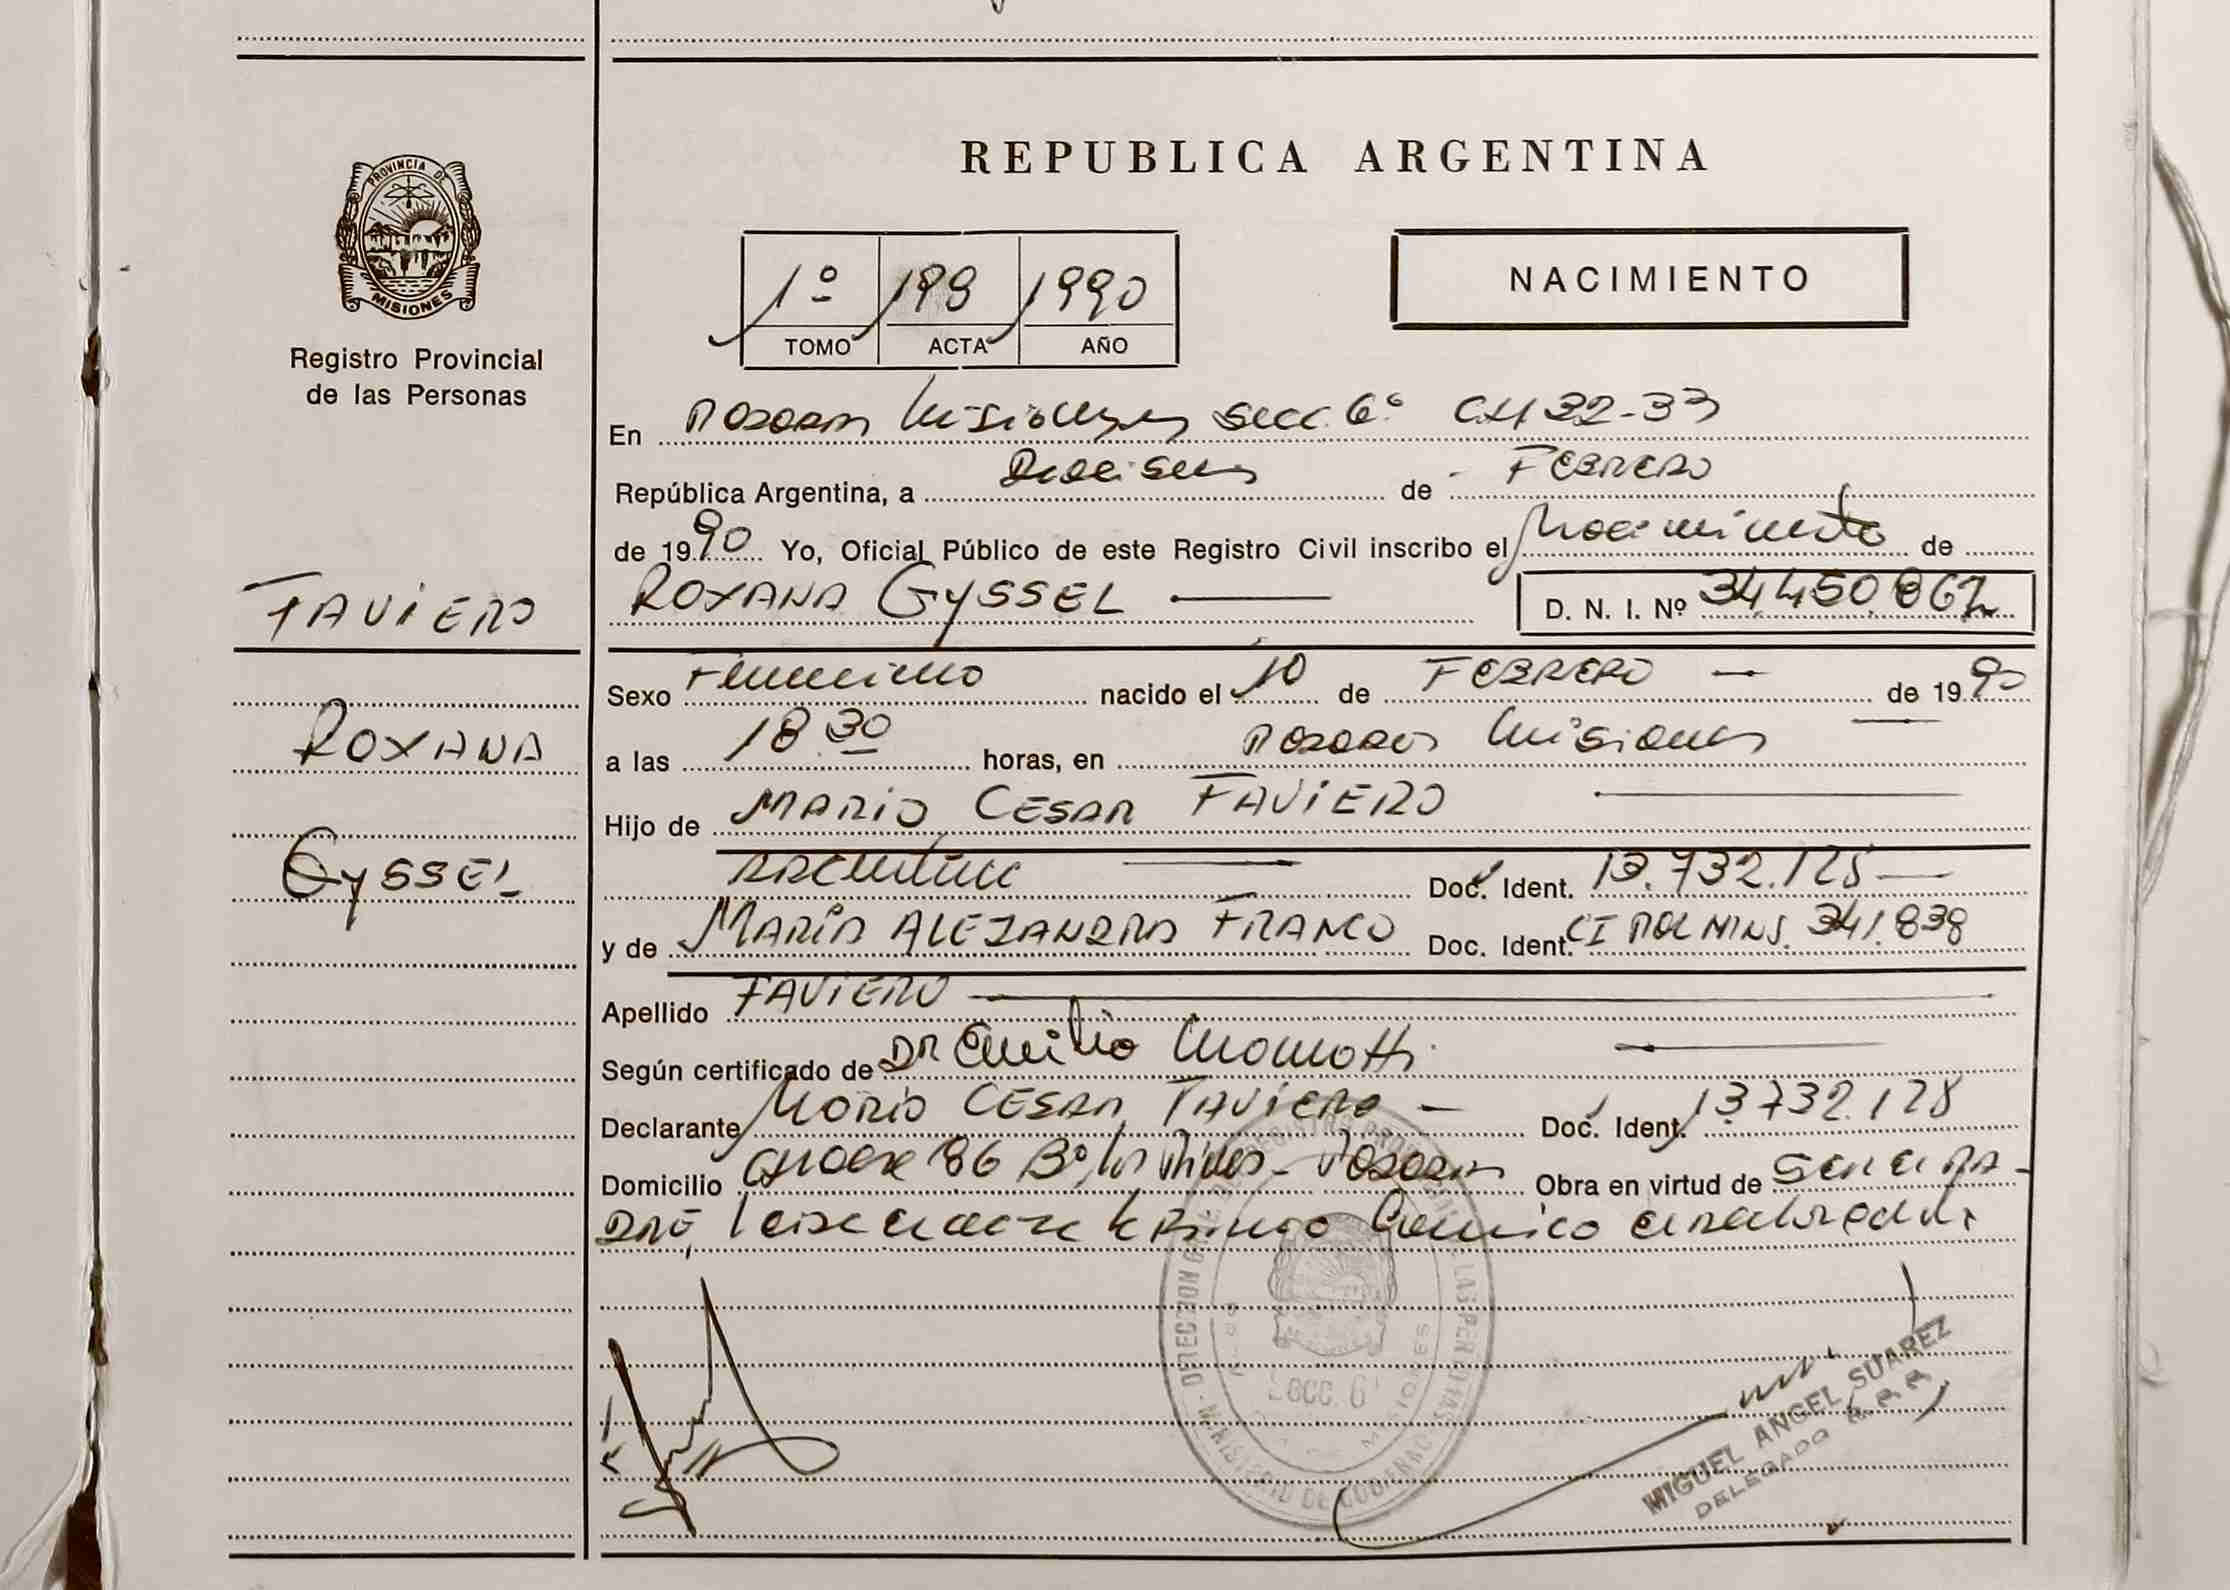 PROVINCIA DE
MISIONES
Registro Provincial
de las Personas
REPUBLICA ARGENTINA
NACIMIENTO
1º 199 1990
TOMO ACTA AÑO
En Posadas Misiones secc. 6º CH 32-33
República Argentina, a Dieciseis de FEBRERO
de 1990 Yo, Oficial Público de este Registro Civil inscribo el Nacimiento de
ROXANA GYSSEL D. N. I. Nº 34.450.867
FAVIERO
ROXANA
GYSSEL
Sexo Femenino nacido el 10 de FEBRERO de 1990
a las 18.30 horas, en Posadas Misiones
Hijo de MARIO CESAR FAVIERO
Argentino Doc. Ident. 13.732.128
y de MARÍA ALEJANDRA FRANCO Doc. Ident. CI POL MNS. 341.838
Apellido FAVIERO
Según certificado de DR Emilio
Declarante MARIO CESAR FAVIERO Doc. Ident. 13.732.128
Domicilio 186 Bº los Posadas Obra en virtud de ser el PA-
DRE,
SECC. 6
MISIONES
MINISTERIO DE GOBIERNO
MIGUEL ANGEL SUAREZ
DELEGADO